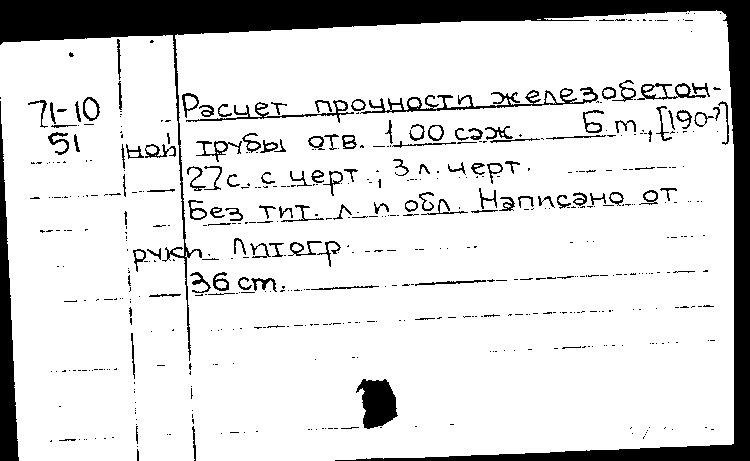 71-10
51
Расчет прочности железобетон-
ной трубы отв. 1,00 саж. Б.т., [190-?]
27с. с черт.; 3 л. черт.
Без тит. л. и обл. Написано от
руки. Литогр.
36 ст.